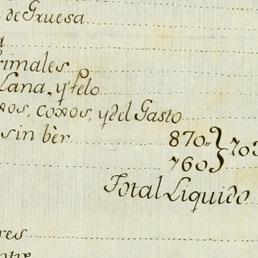 de Gruesa
a
rimales
Lana, y Pelo
os, coxos, y del Gasto
sin bèr 870 } 703
760
Total Liquido
res